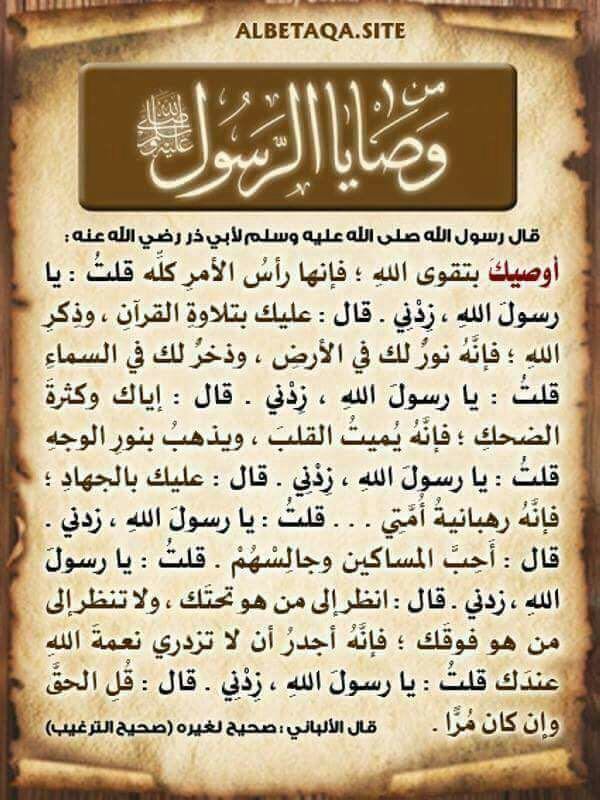 ALBETAQA.SITE
من
وَصَايَا الرَّسُول ﷺ
قال رسول الله صلى الله عليه وسلم لأبي ذر رضي الله عنه :
أوصيكَ بتقوى اللهِ ؛ فإنها رأسُ الأمرِ كلِّه قلتُ : يا
رسولَ اللهِ ، زِدْنِي . قال : عليك بتلاوةِ القرآنِ ، وذِكرِ
اللهِ ؛ فإنَّهُ نورٌ لك في الأرضِ ، وذخرٌ لك في السماءِ
قلتُ : يا رسولَ اللهِ ، زِدْنِي . قال : إياك وكثرةَ
الضحكِ ؛ فإنَّهُ يُميتُ القلبَ ، ويذهبُ بنورِ الوجهِ
قلتُ : يا رسولَ اللهِ ، زِدْنِي . قال : عليك بالجهادِ ؛
فإنَّهُ رهبانيةُ أُمَّتِي . . . قلتُ : يا رسولَ اللهِ ، زدني .
قال : أَحِبَّ المساكين وجالِسْهُمْ . قلتُ : يا رسولَ
اللهِ ، زدني . قال : انظر إلى من هو تحتَك ، ولا تنظر إلى
من هو فوقَك ؛ فإنَّهُ أجدرُ أن لا تزدري نعمةَ اللهِ
عندَك قلتُ : يا رسولَ اللهِ ، زِدْنِي . قال : قُلِ الحقَّ
وإن كان مُرًّا .
قال الألباني : صحيح لغيره (صحيح الترغيب)